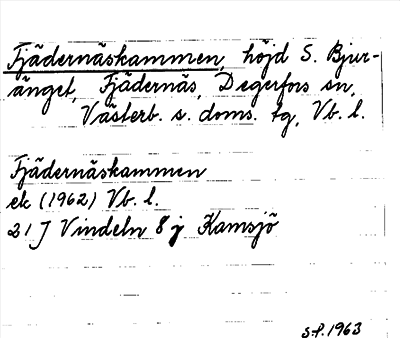 Fjädernäskammen, höjd S. Bjur-
änget, Fjädernäs, Degerfors sn,
Västerb. s. doms. tg, Vb. l.
Fjädernäskammen
ek (1962) Vb. l.
21 J Vindeln 8 j Kamsjö
S.P. 1963